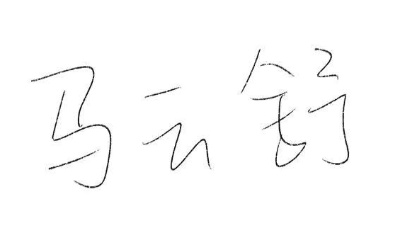 马云舒